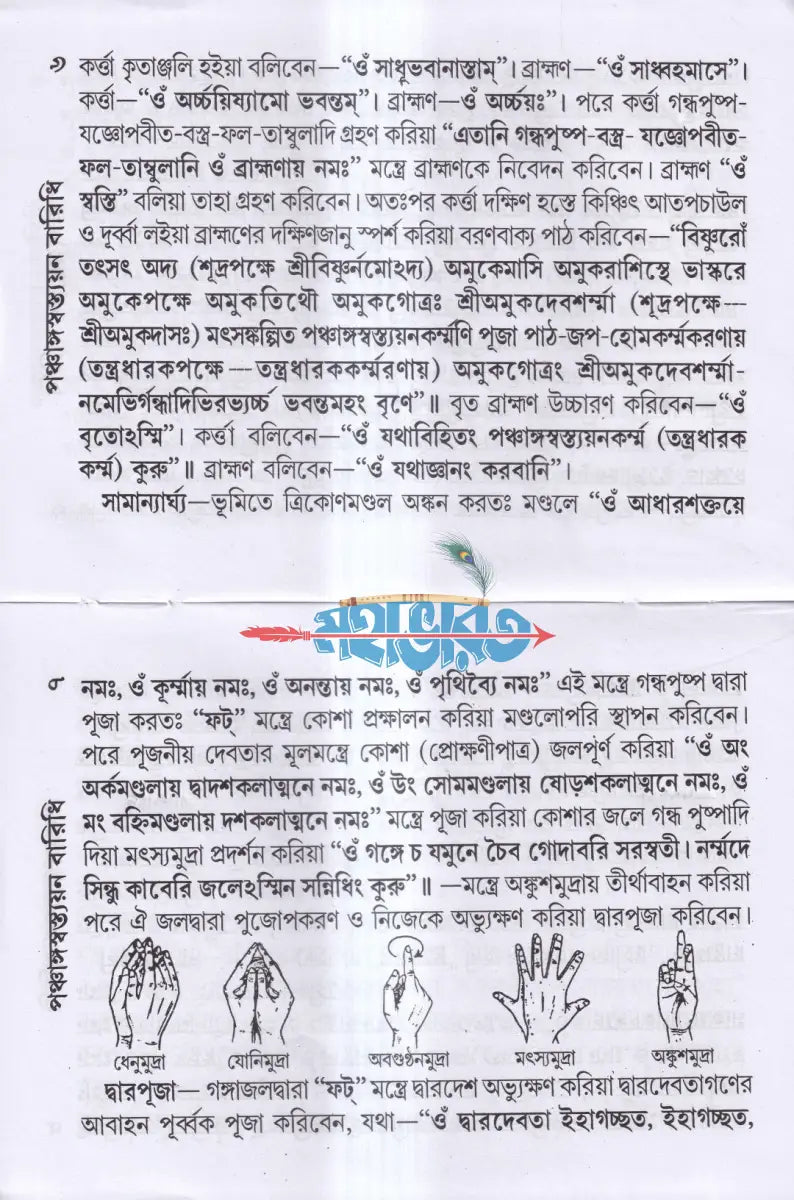 ৭
কর্ত্তা কৃতাঞ্জলি হইয়া বলিবেন—“ওঁ সাধুভবানাস্তাম্”। ব্রাহ্মণ—“ওঁ সাধ্বহমাসে”।
কর্ত্তা—“ওঁ অর্চ্চয়িষ্যামো ভবন্তম্”। ব্রাহ্মণ—ওঁ অর্চ্চয়ঃ”। পরে কর্ত্তা গন্ধপুষ্প-
যজ্ঞোপবীত-বস্ত্র-ফল-তাম্বুলাদি গ্রহণ করিয়া “এতানি গন্ধপুষ্প-বস্ত্র- যজ্ঞোপবীত-
ফল-তাম্বুলানি ওঁ ব্রাহ্মণায় নমঃ” মন্ত্রে ব্রাহ্মণকে নিবেদন করিবেন। ব্রাহ্মণ “ওঁ
স্বস্তি” বলিয়া তাহা গ্রহণ করিবেন। অতঃপর কর্ত্তা দক্ষিণ হস্তে কিঞ্চিৎ আতপচাউল
ও দূর্ব্বা লইয়া ব্রাহ্মণের দক্ষিণজানু স্পর্শ করিয়া বরণবাক্য পাঠ করিবেন—“বিষ্ণুরোঁ
তৎসৎ অদ্য (শূদ্রপক্ষে শ্রীবিষ্ণুর্নমোঽদ্য) অমুকেমাসি অমুকরাশিস্থে ভাস্করে
অমুকেপক্ষে অমুকতিথৌ অমুকগোত্রঃ শ্রীঅমুকদেবশর্ম্মা (শূদ্রপক্ষে---
শ্রীঅমুকদাসঃ) মৎসঙ্কল্পিত পঞ্চাঙ্গস্বস্ত্যয়নকর্ম্মণি পূজা পাঠ-জপ-হোমকর্ম্মকরণায়
(তন্ত্রধারকপক্ষে --- তন্ত্রধারককর্ম্মরণায়) অমুকগোত্রং শ্রীঅমুকদেবশর্ম্মা-
নমেভির্গন্ধাদিভিরভ্যর্চ্চ ভবন্তমহং বৃণে”॥ বৃত ব্রাহ্মণ উচ্চারণ করিবেন—“ওঁ
বৃতোঽস্মি”। কর্ত্তা বলিবেন—“ওঁ যথাবিহিতং পঞ্চাঙ্গস্বস্ত্যয়নকর্ম্ম (তন্ত্রধারক
কর্ম্ম) কুরু”॥ ব্রাহ্মণ বলিবেন—“ওঁ যথাজ্ঞানং করবানি”।
সামান্যার্ঘ্য—ভূমিতে ত্রিকোণমণ্ডল অঙ্কন করতঃ মণ্ডলে “ওঁ আধারশক্তয়ে
পঞ্চাঙ্গস্বস্ত্যয়ন বারিধি
মহাভারত
৮
নমঃ, ওঁ কূর্ম্মায় নমঃ, ওঁ অনন্তায় নমঃ, ওঁ পৃথিব্যৈ নমঃ” এই মন্ত্রে গন্ধপুষ্প দ্বারা
পূজা করতঃ “ফট্” মন্ত্রে কোশা প্রক্ষালন করিয়া মণ্ডলোপরি স্থাপন করিবেন।
পরে পূজনীয় দেবতার মূলমন্ত্রে কোশা (প্রোক্ষণীপাত্র) জলপূর্ণ করিয়া “ওঁ অং
অর্কমণ্ডলায় দ্বাদশকলাত্মনে নমঃ, ওঁ উং সোমমণ্ডলায় ষোড়শকলাত্মনে নমঃ, ওঁ
মং বহ্নিমণ্ডলায় দশকলাত্মনে নমঃ” মন্ত্রে পূজা করিয়া কোশার জলে গন্ধ পুষ্পাদি
দিয়া মৎস্যমুদ্রা প্রদর্শন করিয়া “ওঁ গঙ্গে চ যমুনে চৈব গোদাবরি সরস্বতী। নর্ম্মদে
সিন্ধু কাবেরি জলেঽস্মিন সন্নিধিং কুরু”॥ —মন্ত্রে অঙ্কুশমুদ্রায় তীর্থাবাহন করিয়া
পরে ঐ জলদ্বারা পুজোপকরণ ও নিজেকে অভ্যুক্ষণ করিয়া দ্বারপূজা করিবেন।
পঞ্চাঙ্গস্বস্ত্যয়ন বারিধি
ধেনুমুদ্রা যোনিমুদ্রা অবগুণ্ঠনমুদ্রা মৎস্যমুদ্রা অঙ্কুশমুদ্রা
দ্বারপূজা— গঙ্গাজলদ্বারা “ফট্” মন্ত্রে দ্বারদেশ অভ্যুক্ষণ করিয়া দ্বারদেবতাগণের
আবাহন পূর্ব্বক পূজা করিবেন, যথা—“ওঁ দ্বারদেবতা ইহাগচ্ছত, ইহাগচ্ছত,